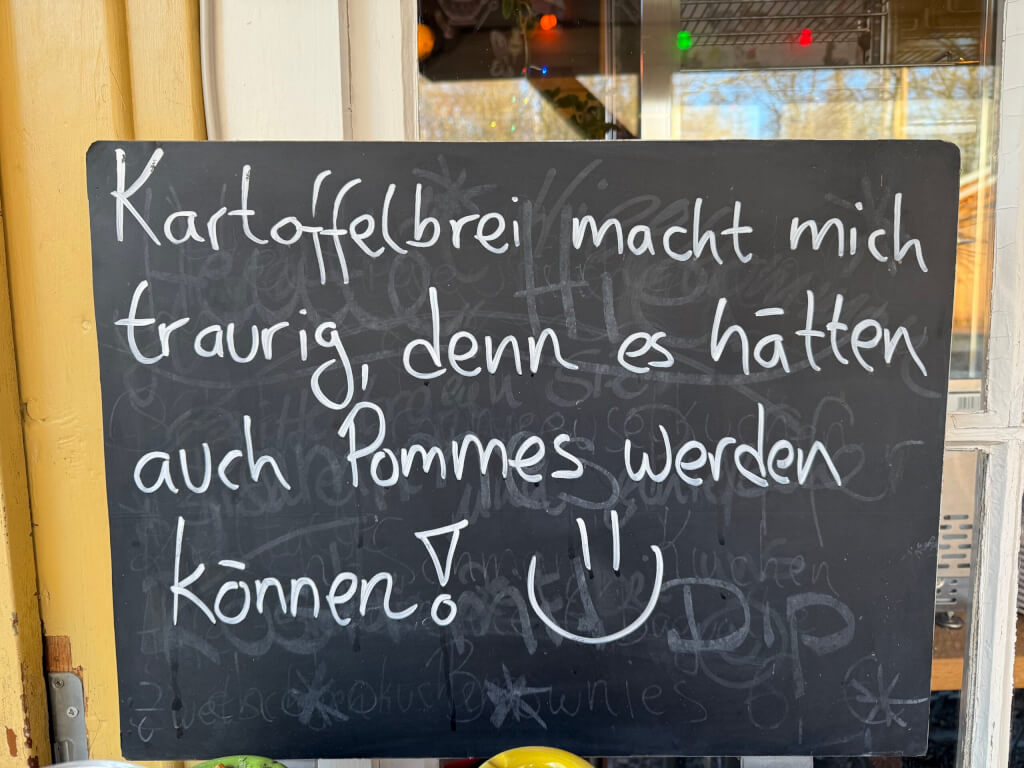 Kartoffelbrei macht mich
traurig, denn es hätten
auch Pommes werden
können!
Dip